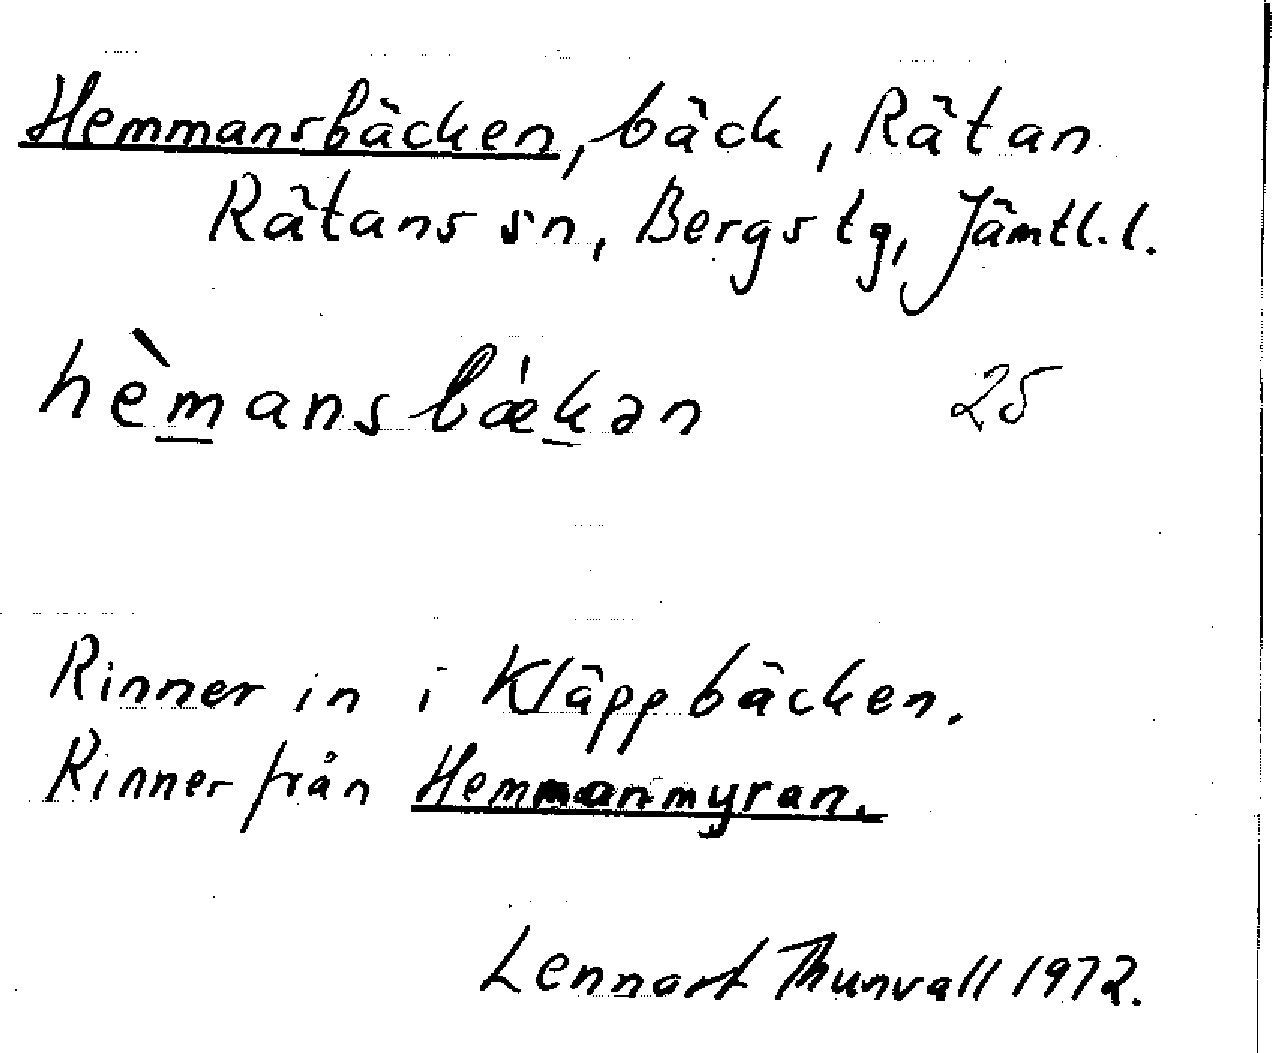 Hemmansbäcken, bäck, Rätan
Rätans sn, Bergs tg, Jämtl.l.
hèmansbækən 25
Rinner in i Kläppbäcken.
Rinner från Hemmanmyran.
Lennart Thunvall 1972.